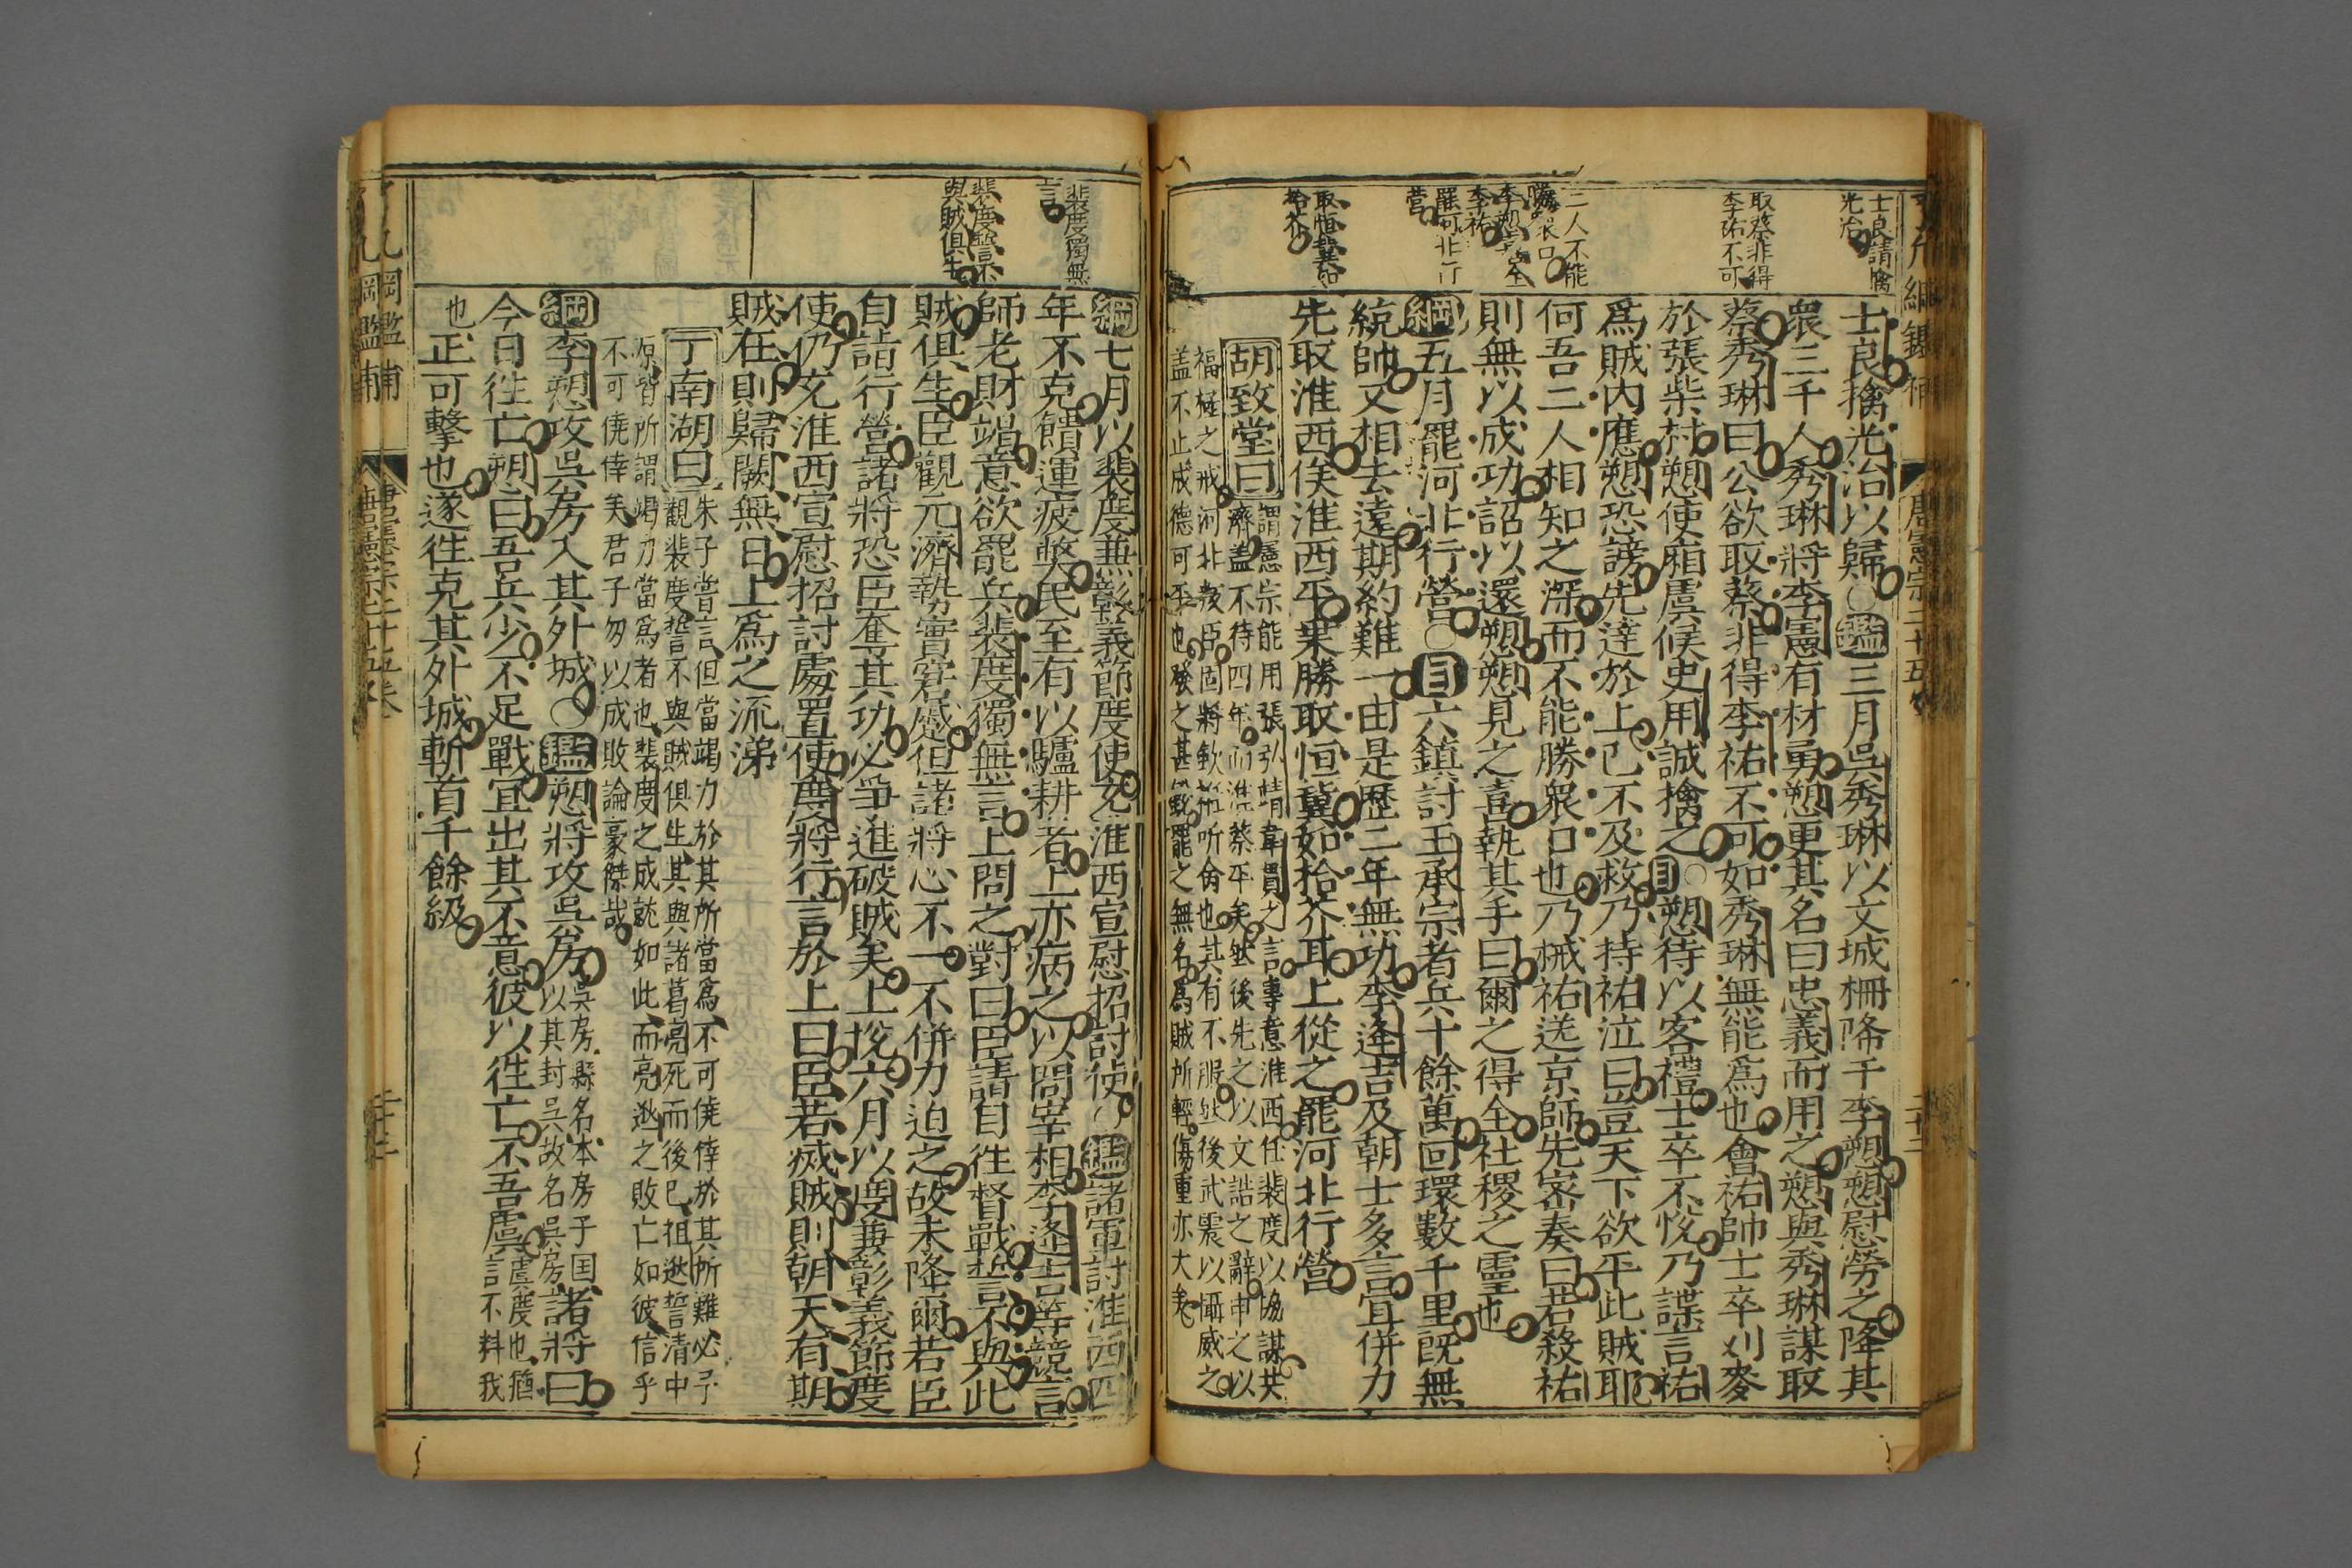 士良請擒
光洽
取蔡非得
李祐不可
二人不能
勝衆口
李愬
李祐
罷河北行
營
取恒冀如
拾芥
士良擒光洽以歸○鑑三月吳秀琳以文城柵降于李愬愬慰勞之降其
衆三千人秀琳將李憲有材勇愬更其名曰忠義而用之愬與秀琳謀取
蔡秀琳曰公欲取蔡非得李祐不可如秀琳無能爲也會祐帥士卒刈麥
於張柴村愬使廂虞候史用誠擒之○目愬待以客禮士卒不恱乃諜言祐
爲賊内應愬恐謗先達於上已不及救乃持祐泣曰豈天下欲平此賊耶
何吾二人相知之深而不能勝衆口也乃械祐送京師先密奏曰若殺祐
則無以成功詔以還愬愬見之喜執其手曰爾之得全社稷之靈也
綱五月罷河北行營○目六鎮討王承宗者兵十餘萬回環數千里既無
統帥又相去遠期約難一由是歷二年無功李逢吉及朝士多言宜併力
先取淮西俟淮西平乘勝取恒冀如拾芥耳上從之罷河北行營
胡致堂曰
謂憲宗能用張弘靖韋貫之言專意淮西任裴度以協謀共
濟盖不待四年而淮蔡平矣然後先之以文誥之辭申之以
福極之戒河北叛臣固將軟 所備也其有不服然後武震以懾威之
盖不止成德可平也發之甚 罷之無名爲賊所輕傷重亦大矣
唐憲宗二十五卷
裴度獨無
言
裴度誓不
與賊俱生
綱七月以裴度兼彰義節度使充淮西宣慰招討使○鑑諸軍討淮西四
年不克饋運疲獘民至有以驢耕者上亦病之以問宰相李逢吉等競言
師老財竭意欲罷兵裴度獨無言上問之對曰臣請自徃督戰誓不與此
賊俱生臣觀元濟勢實窘蹙但諸將心不一不併力迫之故未降爾若臣
自詣行營諸將恐臣奪其功必爭進破賊矣上恱六月以度兼彰義節度
使仍充淮西宣慰招討處置使度將行言於上曰臣若滅賊則朝天有期
賊在則歸闕無日上爲之流涕
丁南湖曰
朱子嘗言但當竭力於其所當爲不可僥倖於其所難必予
觀裴度誓不與賊俱生其與諸葛亮死而後已祖逖誓清中
原皆所謂竭力當爲者也裴度之成就如此而亮逖之敗亡如彼信乎
不可僥倖矣君子勿以成敗論豪傑哉
綱李愬攻吳房入其外城○鑑愬將攻吳房吳房縣名本房子国以其封吳故名吳房諸將曰
今日徃亡愬曰吾兵少不足戰宜出其不意彼以徃亡不吾虞虞度也猶言不料我
也正可擊也遂徃克其外城斬首千餘級
唐憲宗二十五卷